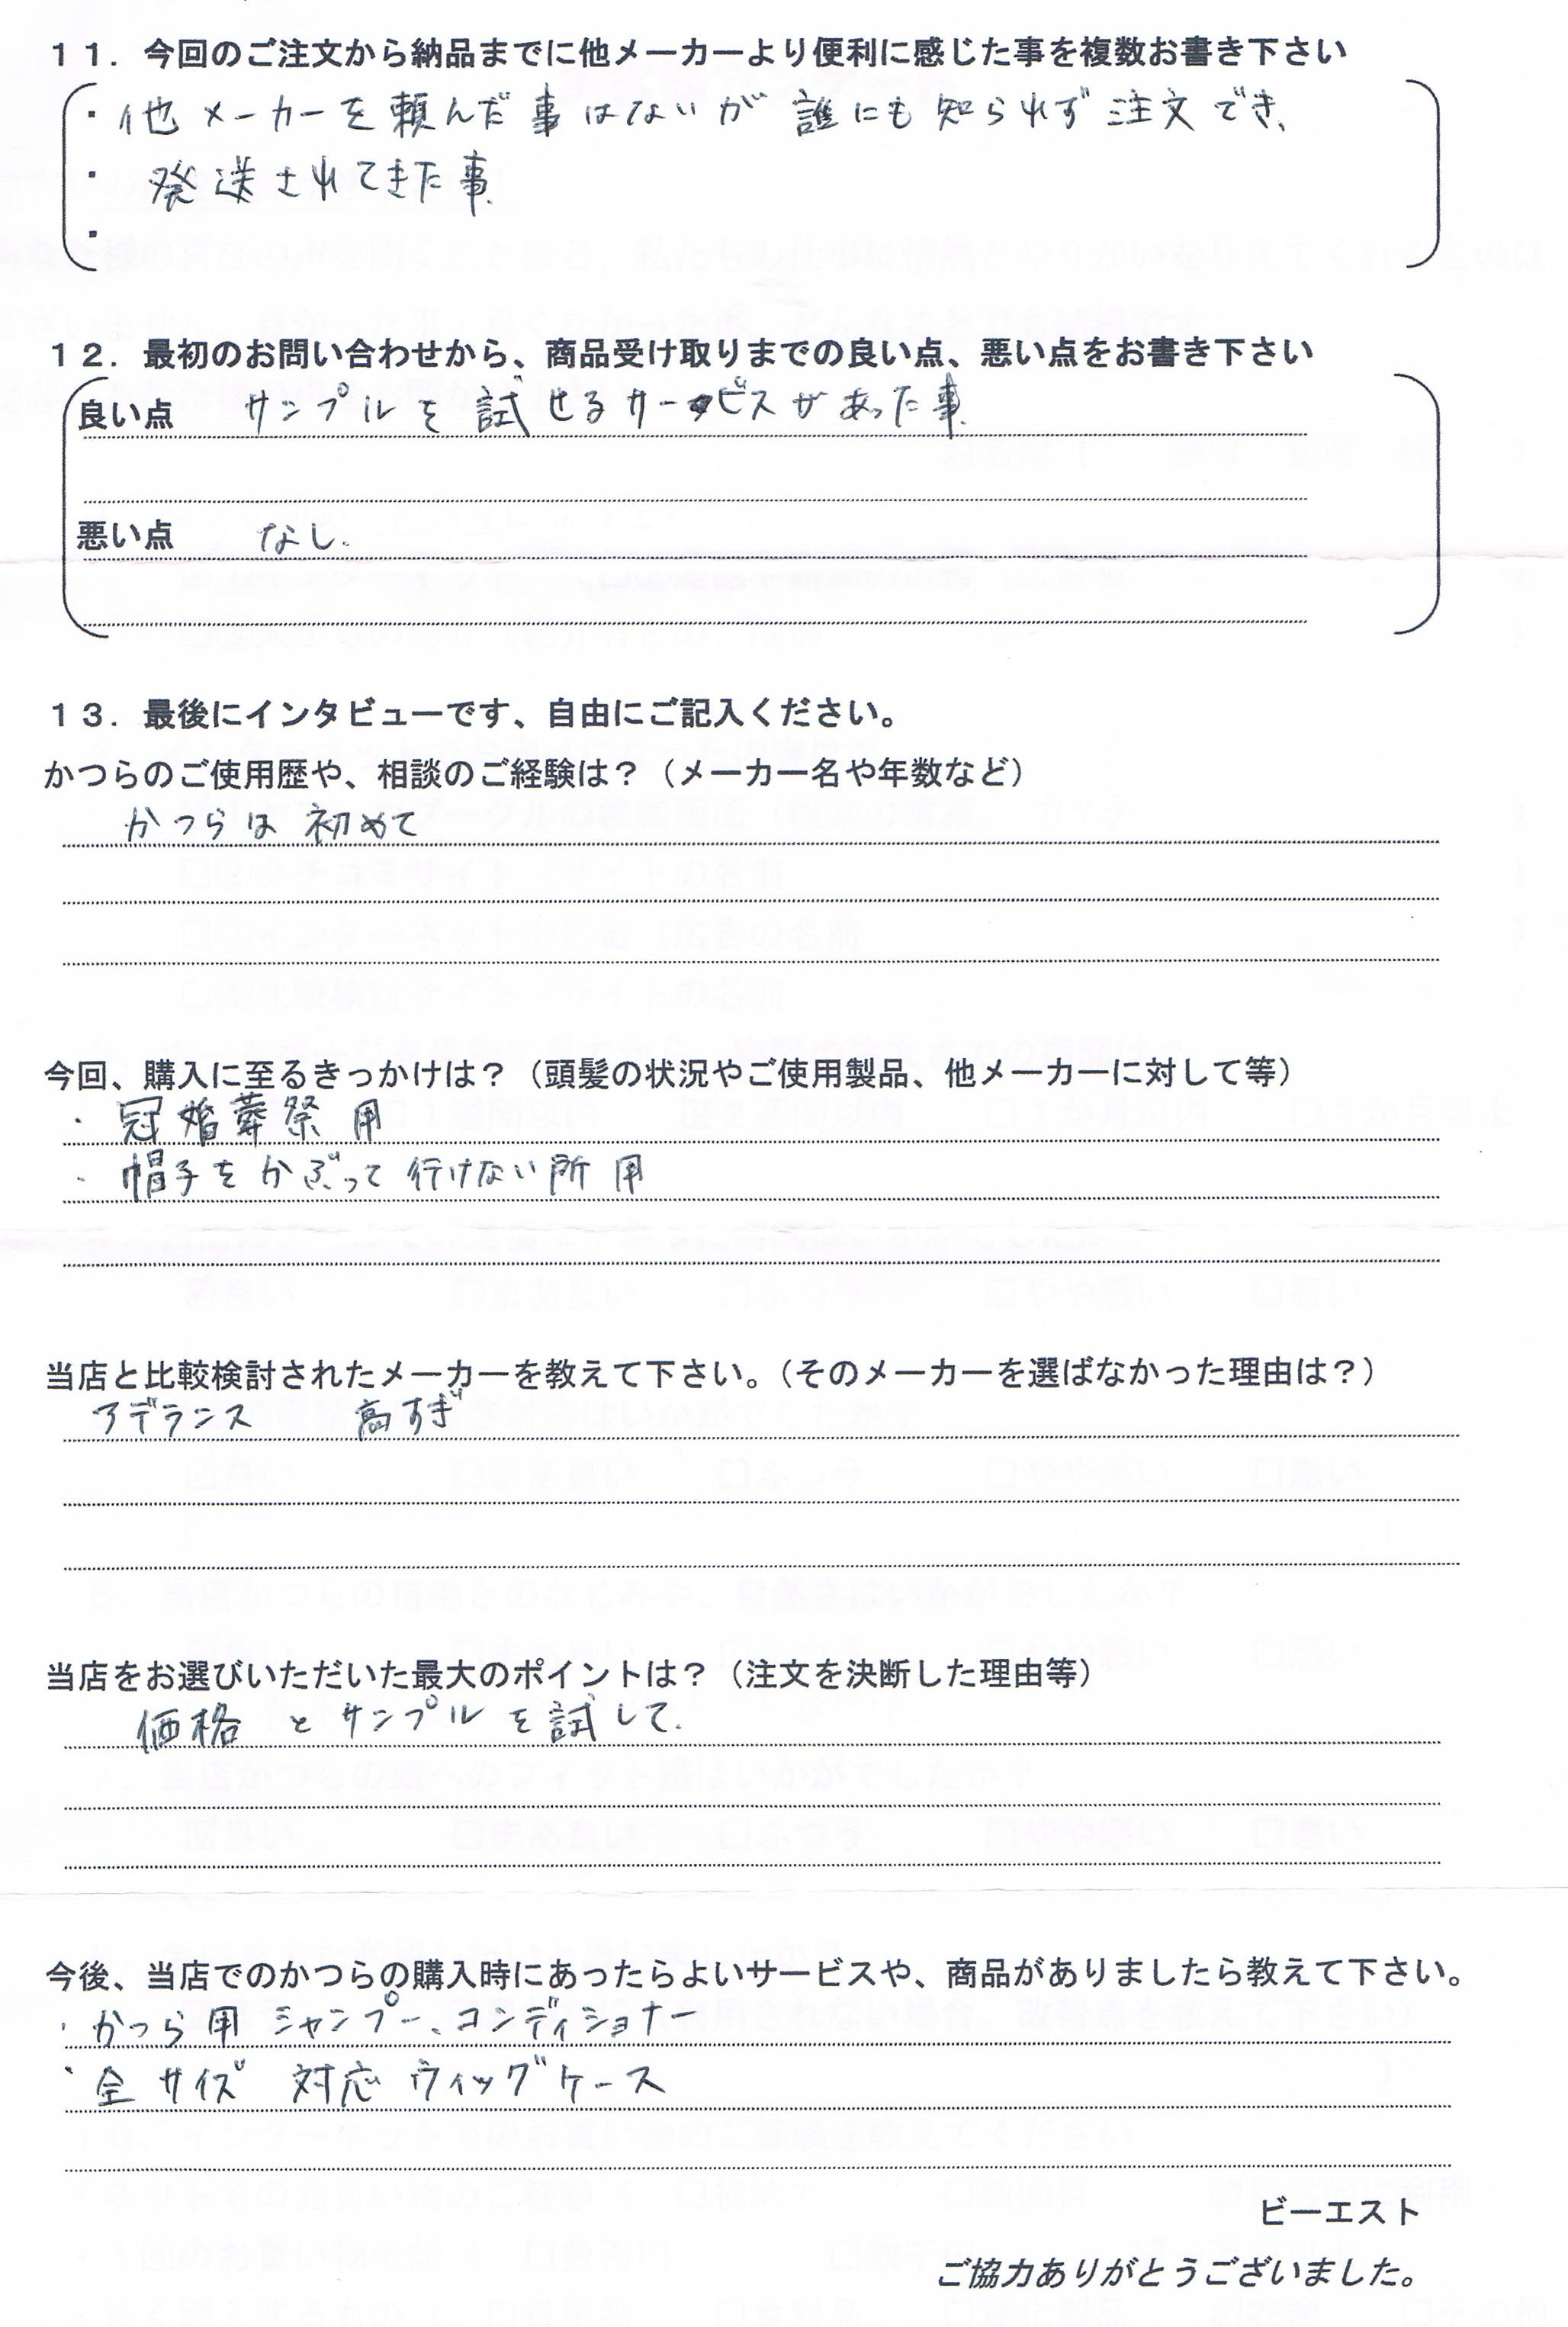 11．今回のご注文から納品までに他メーカーより便利に感じた事を複数お書き下さい
・他メーカーを頼んだ事はないが 誰にも知られず注文でき、
・発送されてきた事
・
12．最初のお問い合わせから、商品受け取りまでの良い点、悪い点をお書き下さい
良い点 サンプルを試せるサービスがあった事
悪い点 なし.
13．最後にインタビューです、自由にご記入ください。
かつらのご使用歴や、相談のご経験は？（メーカー名や年数など）
かつらは 初めて
今回、購入に至るきっかけは？（頭髪の状況やご使用製品、他メーカーに対して等）
・冠婚葬祭用
・帽子をかぶって行けない所用
当店と比較検討されたメーカーを教えて下さい。（そのメーカーを選ばなかった理由は？）
アデランス 高すぎ
当店をお選びいただいた最大のポイントは？（注文を決断した理由等）
価格とサンプルを試して.
今後、当店でのかつらの購入時にあったらよいサービスや、商品がありましたら教えて下さい。
・かつら用シャンプー、コンディショナー
・全サイズ 対応 ウィッグケース
ビーエスト
ご協力ありがとうございました。